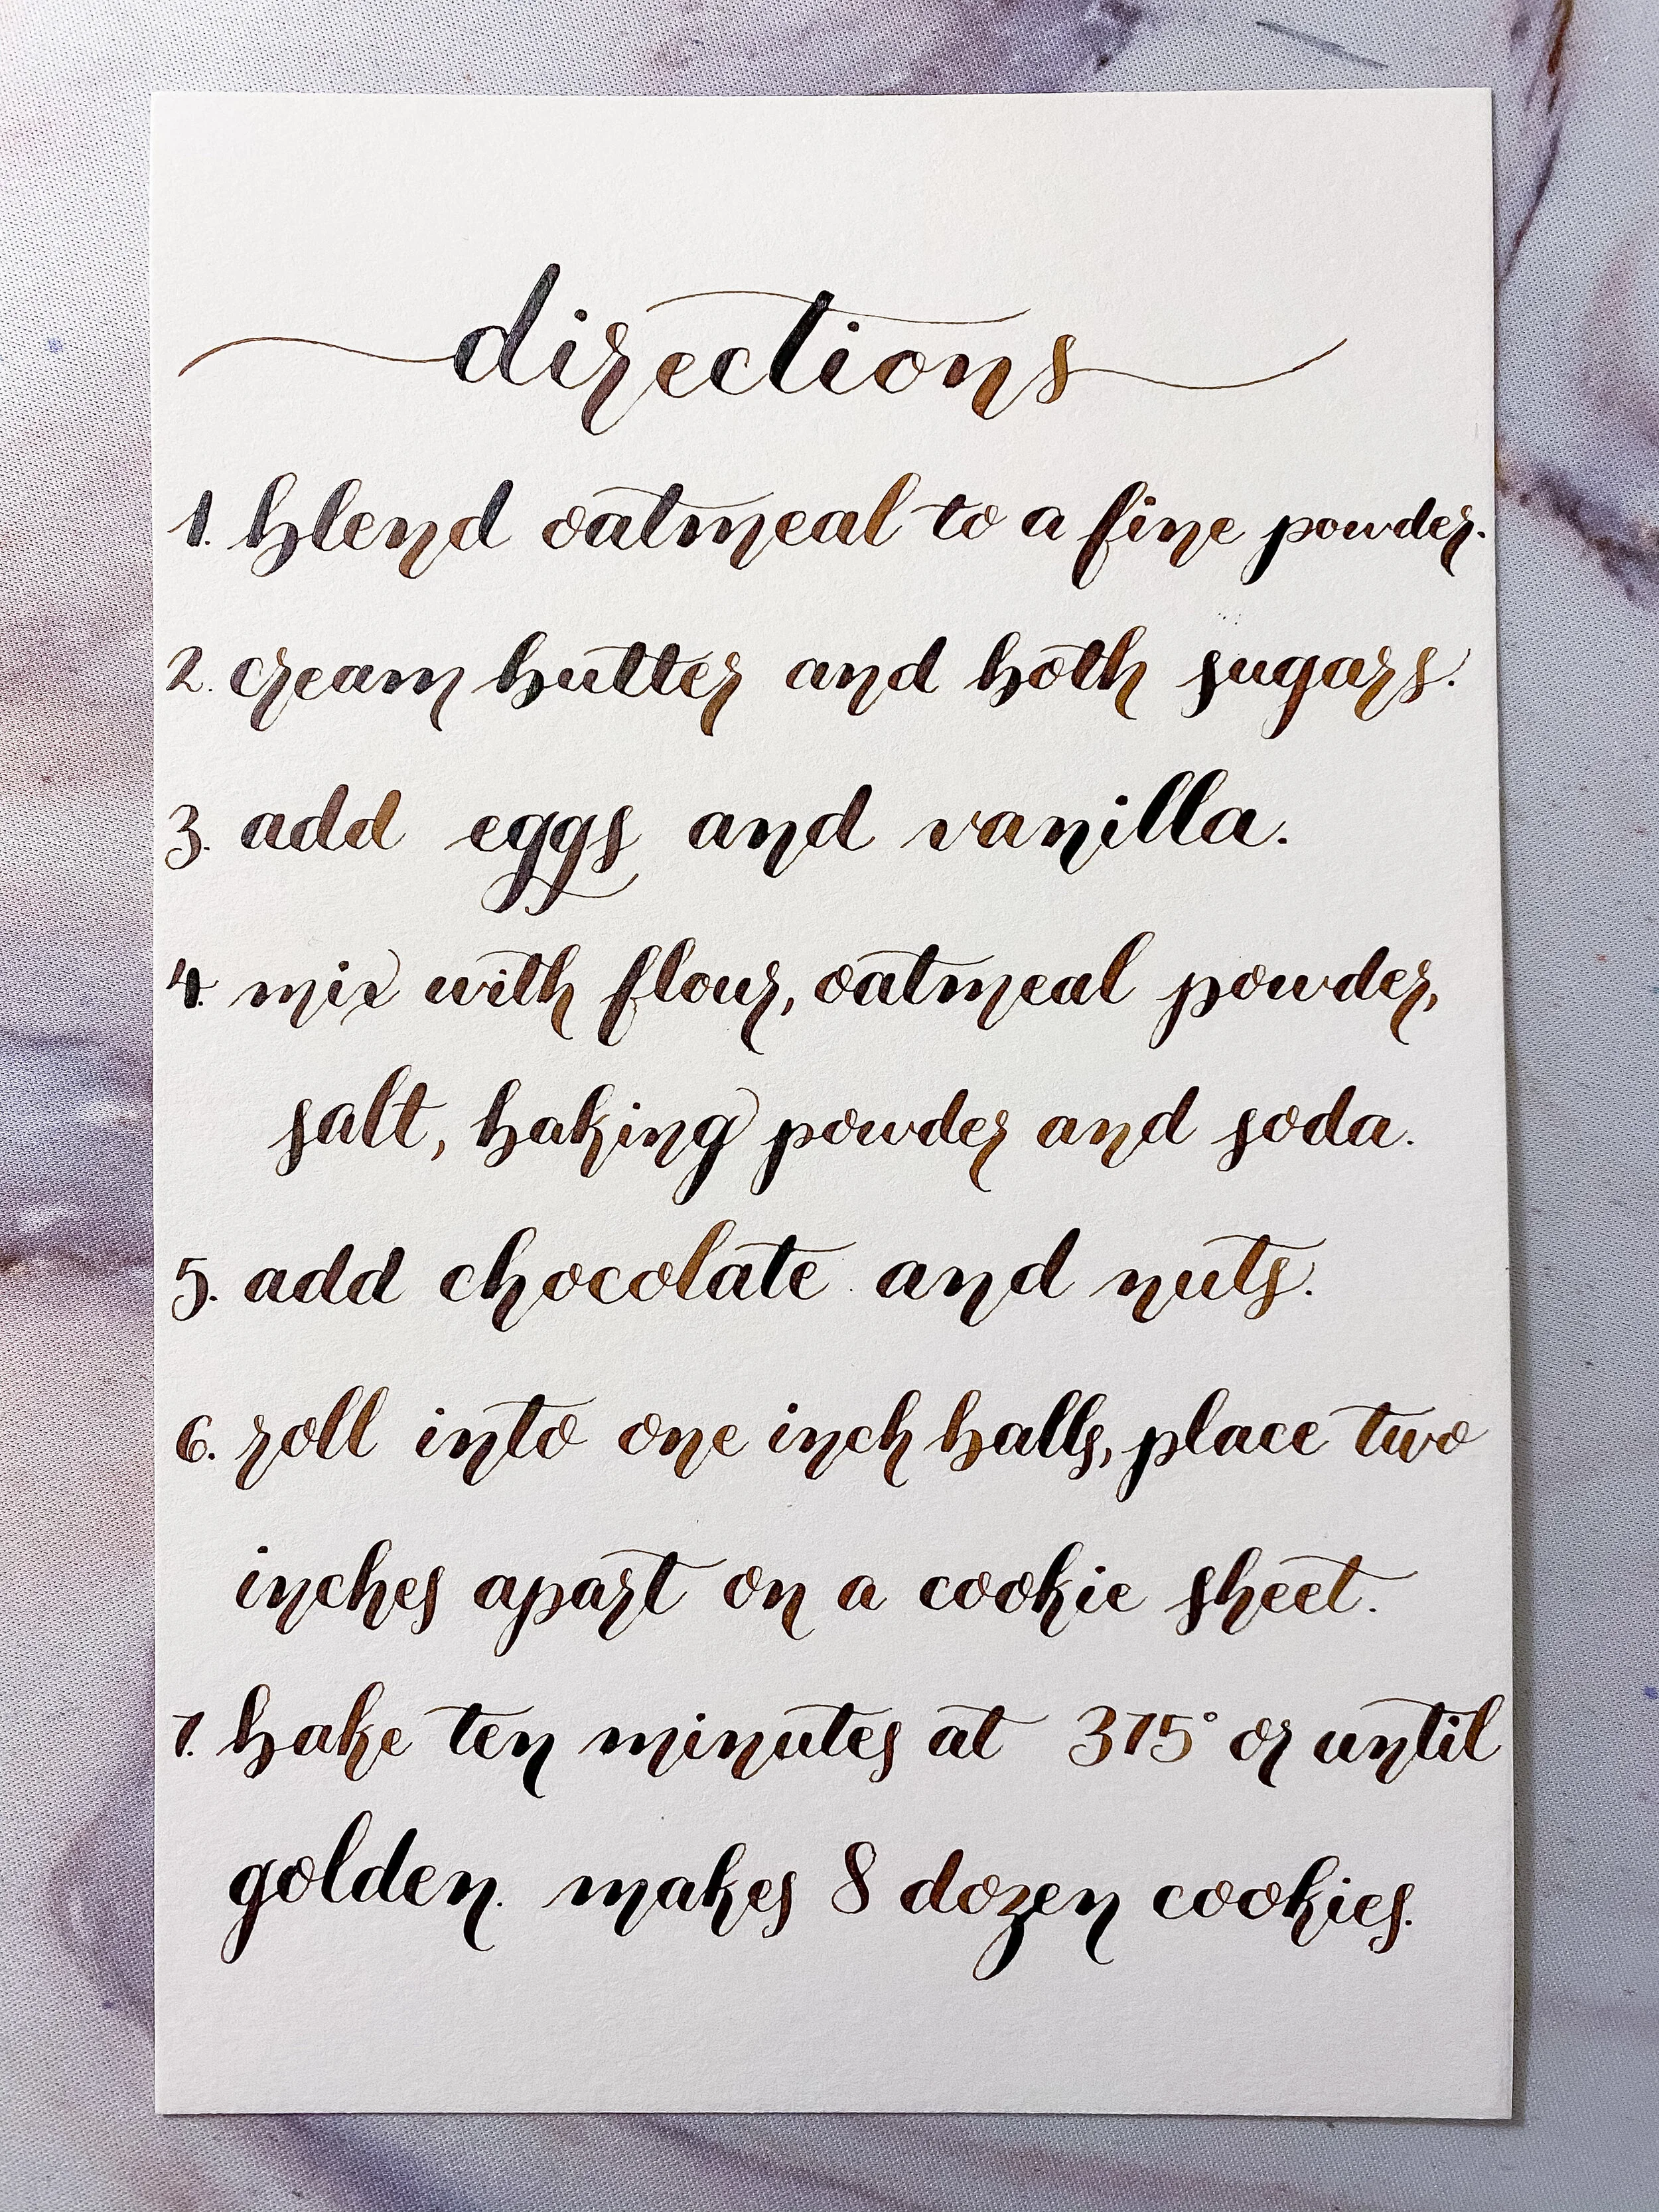 directions
1. blend oatmeal to a fine powder.
2. cream butter and both sugars.
3. add eggs and vanilla.
4. mix with flour, oatmeal powder,
salt, baking powder and soda.
5. add chocolate and nuts.
6. roll into one inch balls, place two
inches apart on a cookie sheet.
7. bake ten minutes at 375° or until
golden. makes 8 dozen cookies.